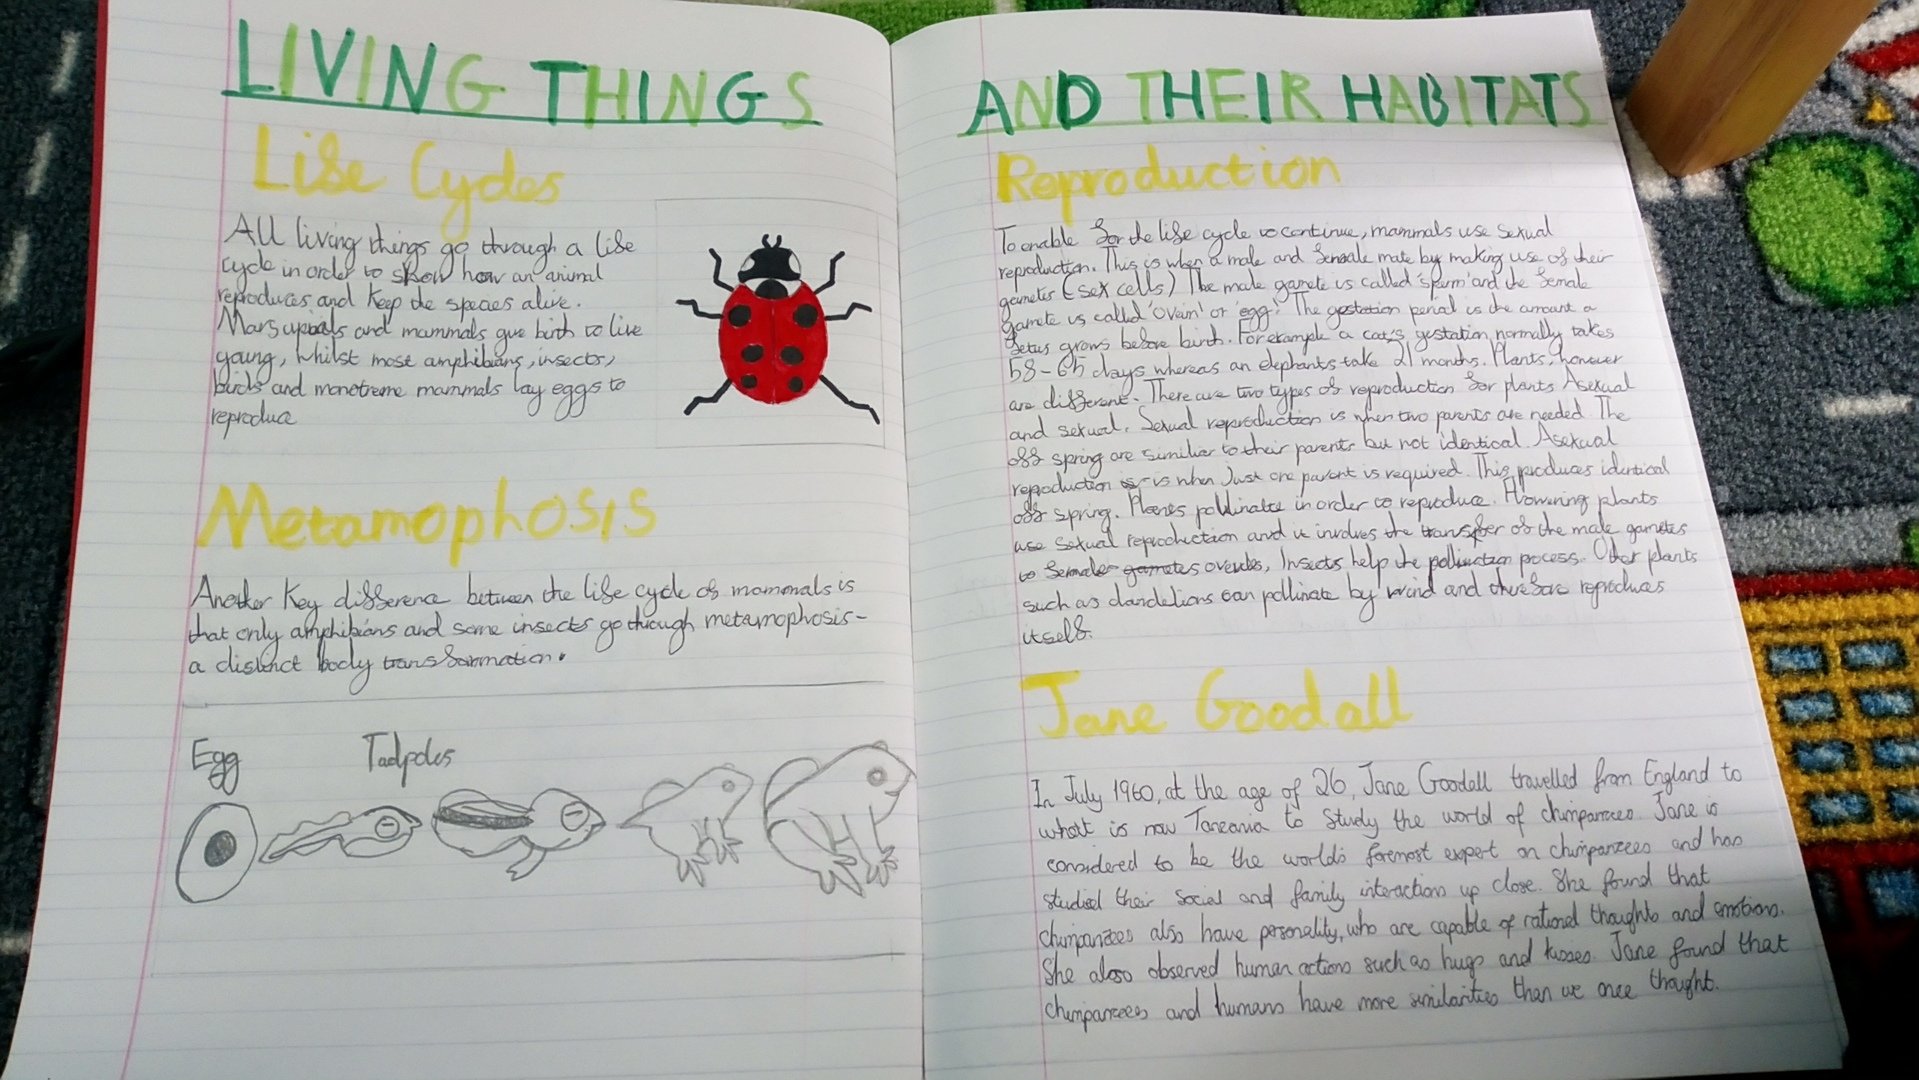 LIVING THINGS
Life Cycles
All living things go through a life
cycle in order to show how an animal
reproduces and keep the species alive.
Marsupials and mammals give birth to live
young, whilst most amphibians, insects,
birds and monotreme mammals lay eggs to
reproduce
Metamophosis
Another key difference between the life cycle of mammals is
that only amphibians and some insects go through metamophosis-
a distinct body transformation.
Egg Tadpoles
AND THEIR HABITATS
Reproduction
To enable for the life cycle to continue, mammals use sexual
reproduction. This is when a male and female mate by making use of their
gametes (sex cells) The male gamete is called 'sperm' and the female
gamete is called 'Ovum' or 'egg'. The gestation period is the amount a
fetus grows before birth. For example a cat's gestation normally takes
58-65 days whereas an elephants take 21 months. Plants, however
are different. There are two types of reproduction for plants Asexual
and sexual. Sexual reproduction is when two parents are needed. The
off spring are similier to their parents but not identical. Asexual
reproduction is when Just one parent is required. This produces identical
off spring. Plants pollinate in order to reproduce. Flowering plants
use sexual reproduction and it involves the transfer of the male gametes
to female gametes Insects help the pollination pocess. Other plants
such as dandelions can pollinate by wind and therefore reproduces
itself.
Jane Goodall
In July 1960, at the age of 26, Jane Goodall travelled from England to
what is now Tanzania to study the world of chimpanzees. Jane is
considered to be the world's foremost expert on chimpanzees and has
studied their social and family interactions up close. She found that
chimpanzees also have personality, who are capable of rational thoughts and emotions.
She also observed human actions such as hugs and kisses. Jane found that
chimpanzees and humans have more similarities than we once thought.